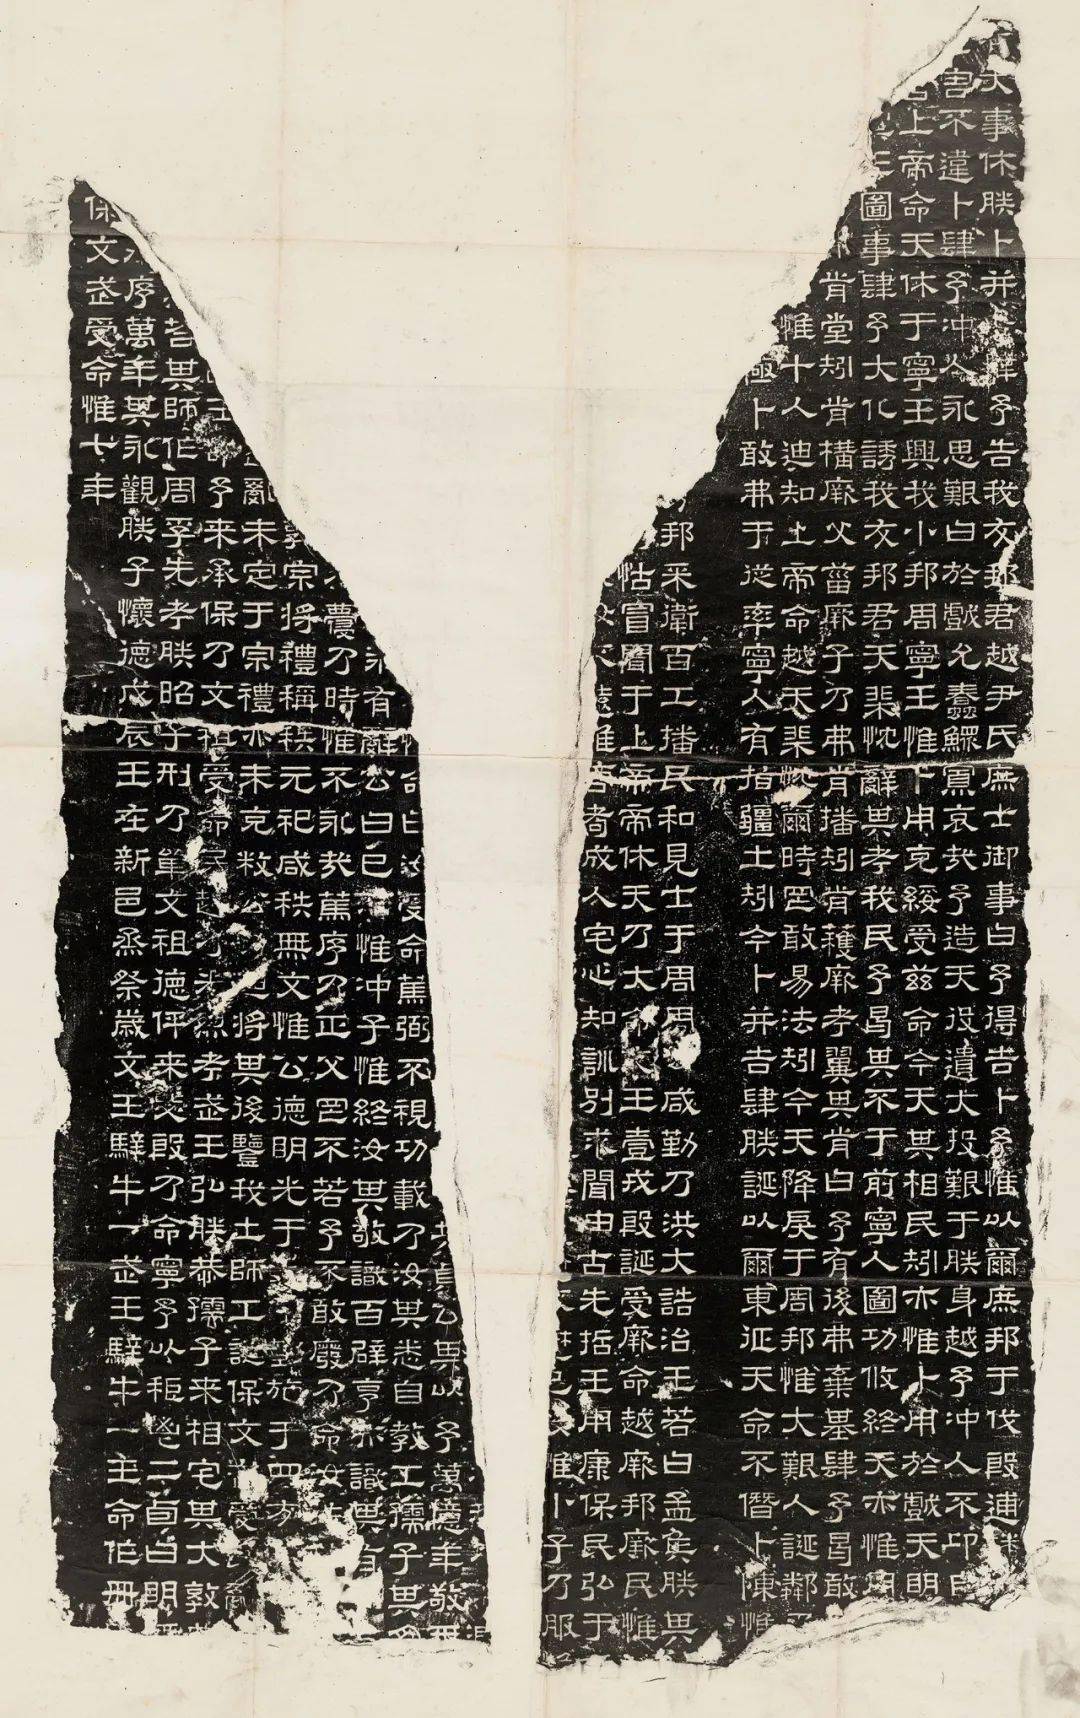 大事休朕卜并吉肆予告我友邦君越尹氏庶士御事曰予得吉卜予惟以爾庶邦于伐殷逋
害不違卜肆予沖人永思艱曰於戲允蠢鰥寡哀哉予造天役遺大投艱于朕身越予沖人不卬自
上帝命天休于寧王興我小邦周寧王惟卜用克綏受茲命今天其相民矧亦惟卜用於戲天明
王圖事肆予大化誘我友邦君天棐忱辭其考我民予曷其不于前寧人圖功攸終天亦惟用
肯堂矧肯構厥父菑厥子乃弗肯播矧肯穫厥考翼其肯曰予有後弗棄基肆予曷敢
惟十人迪知上帝命越天棐忱爾時罔敢易法矧今天降戾于周邦惟大艱人誕鄰
極卜敢弗于從率寧人有指疆土矧今卜并吉肆朕誕以爾東征天命不僭卜陳惟
邦采衛百工播民和見士于周周咸勤乃洪大誥治王若曰孟侯朕其
怙冒聞于上帝帝休天乃大命王壹戎殷誕受厥命越厥邦厥民惟
遠惟耇成人宅心知訓別求聞由古先哲王用康保民弘于
惟小子乃服
公其以予萬億年敬天
曰汝受命篤弼丕視功載乃汝其悉自教工孺子其
有辭公曰已惟沖子惟終汝其敬識百辟享亦識其有
乃時惟不永哉篤序乃正父罔不若予不敢廢乃命汝
宗將禮稱秩元祀咸秩無文惟公德明光于施于四方
亂未定于宗禮亦未克敉迪將其後監我士師工誕保文受
王命予來承保乃文祖受命民越乃光烈考武王弘朕恭孺子來相宅其大敦
其師作周孚先考朕昭子刑乃單文祖德伻來毖殷乃命寧予以秬鬯二卣曰明禋
序萬年其永觀朕子懷德戊辰王在新邑烝祭歲文王騂牛一武王騂牛一王命作冊
保文武受命惟七年